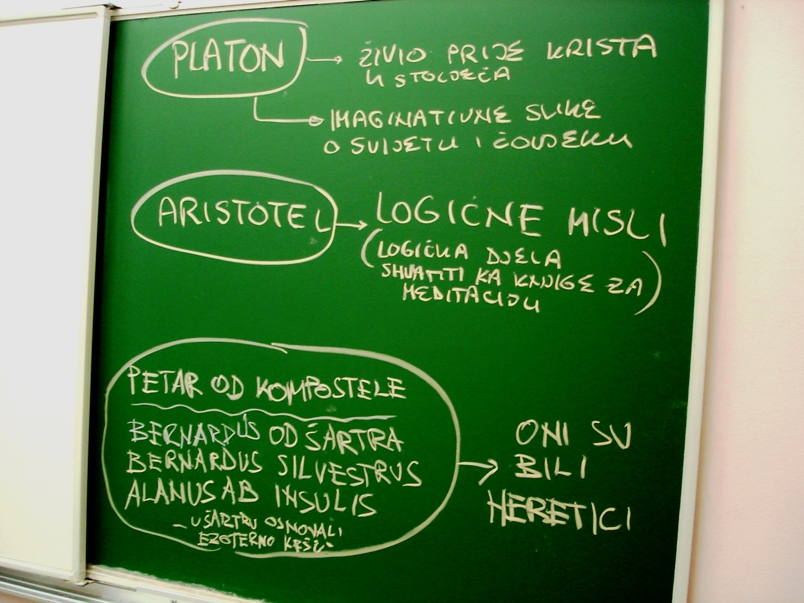 PLATON → ŽIVIO PRIJE KRISTA
4 STOLJEĆA
IMAGINATIVNE SLIKE
O SVIJETU I ČOVJEKU
ARISTOTEL → LOGIČNE MISLI
(LOGIČKA DJELA
SHVATITI KA KNJIGE ZA
MEDITACIJU)
PETAR OD KOMPOSTELE
BERNARDUS OD ŠARTRA
BERNARDUS SILVESTRUS
ALANUS AB INSULIS
– U ŠARTRU OSNOVALI
EZOTERNO KRŠĆ-
→ ONI SU
BILI
HERETICI